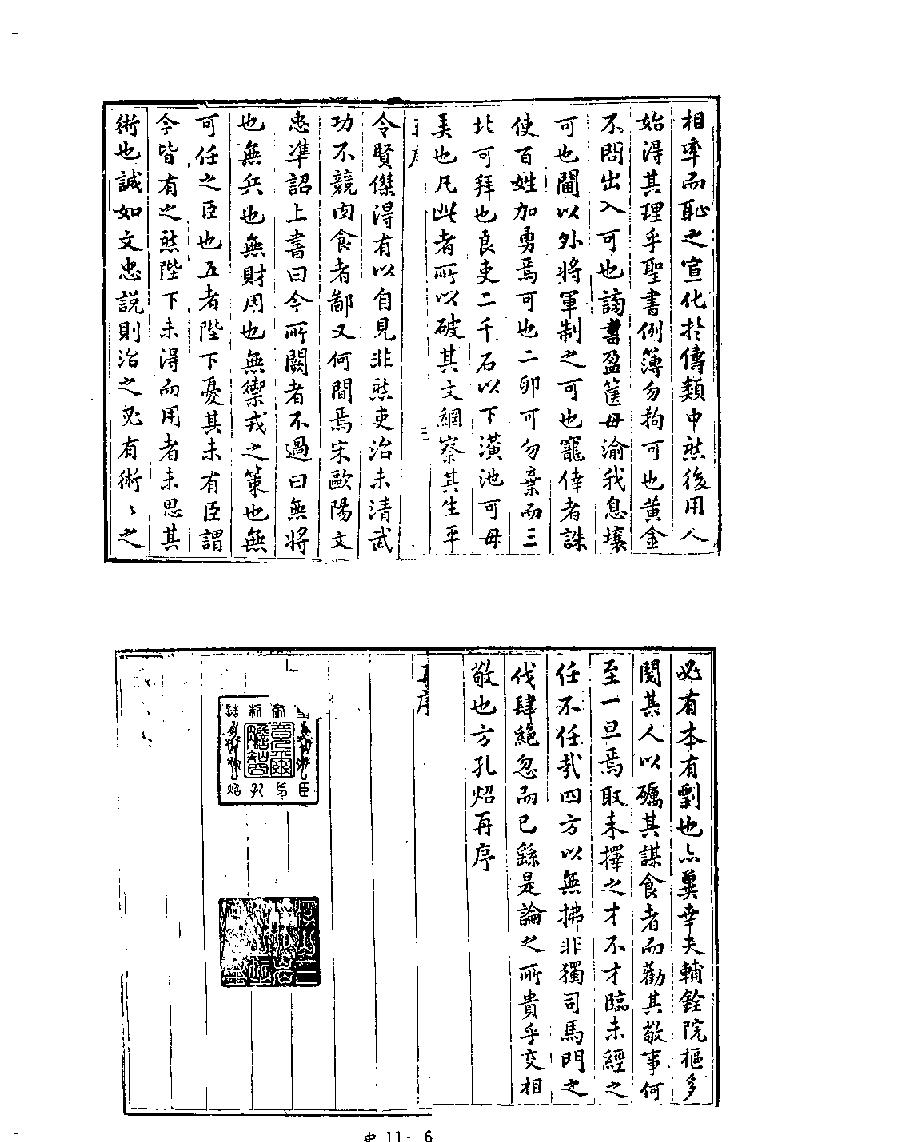 相率而恥之宣化於傳類中然後用人
始得其理乎聖書例簿勿拘可也黃金
不問出入可也謗書盈篋毋渝我息壤
可也閫以外將軍制之可也寵倖者誅
使百姓加勇焉可也二卵可勿棄而三
北可拜也良吏二千石以下潢池可毋
美也凡此者所以破其文網察其生平
再序
三
令賢傑得有以自見非然吏治未清武
功不競肉食者鄙又何間焉宋歐陽文
忠準詔上書曰今所闕者不過曰無將
也無兵也無財用也無禦戎之策也無
可任之臣也五者陛下憂其未有臣謂
今皆有之然陛下未得而用者未思其
術也誠如文忠說則治之況有術〻之
必有本有劑也亦冀幸夫輔銓院樞多
閱其人以礪其謀食者而勸其敬事何
至一旦焉取未擇之才不才臨未經之
任不任哉四方以無拂非獨司馬門之
伐肆絕忽而已繇是論之所貴乎交相
敬也方孔炤再序
再序
史 11- 6